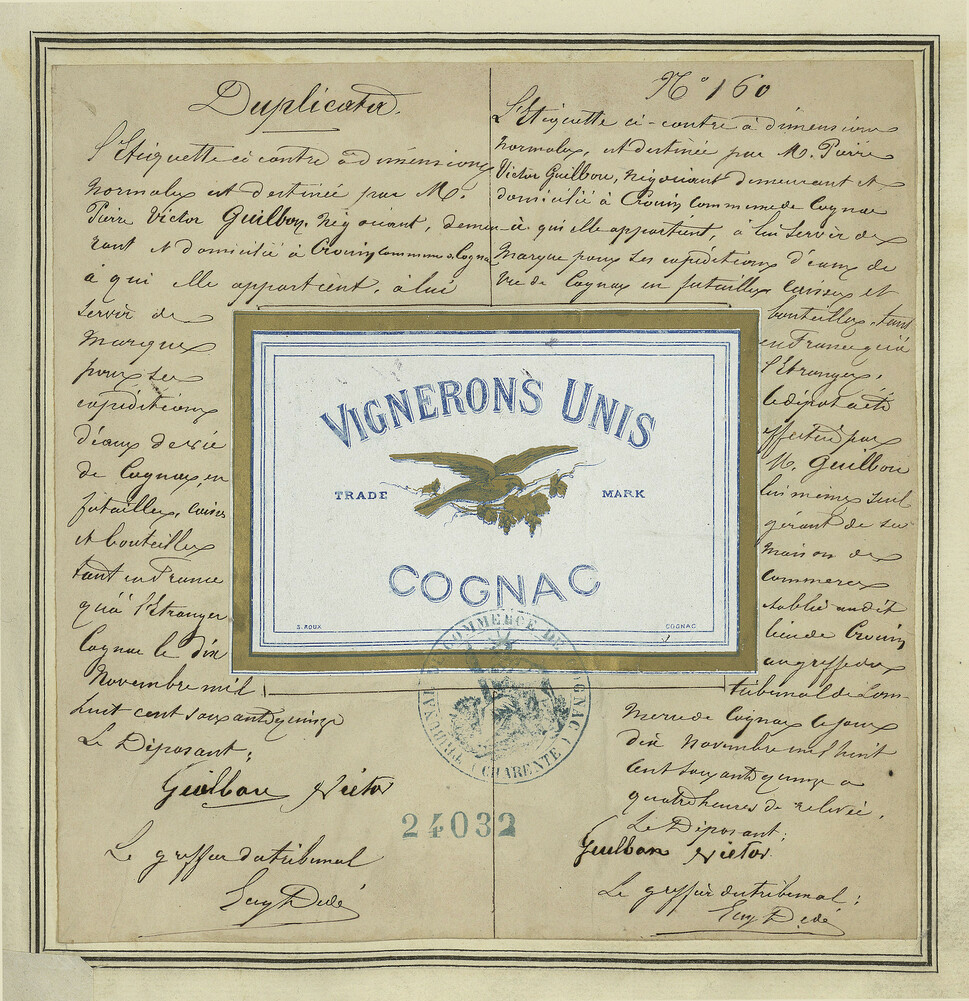 Duplicata.
L'Etiquette ci contre à dimensions
normales est destinée par M.
Pierre Victor Guilbon, négociant, demeu-
rant et domicilié à Crouin commune de Cognac
à qui elle appartient, à lui
servir de
Marque
pour ses
expéditions
d'eaux de vie
de Cognac, en
futailles, caisses
et bouteilles
tant en France
qu'à l'étranger
Cognac le dix
Novembre mil
huit cent soixante quinze
Le Déposant;
Guilbon Victor
Le greffier du tribunal
N° 160
L'Etiquette ci-contre à dimensions
normales, est destinée par M. Pierre
Victor Guilbon, négociant demeurant et
domicilié à Crouin Commune de Cognac
à qui elle appartient, à lui servir de
Marque pour ses expéditions d'eaux de
vie de Cognac en futailles caisses et
bouteilles, tant
en France qu'à
l'étranger,
le dépôt a été
effectué par
M. Guilbon
lui même, seul
gérant de sa
maison de
commerce
établie au dit
lieu de Crouin
au greffe du
tribunal de Com-
merce de Cognac le jour
dix novembre mil huit
cent soixante quinze a
quatre heures de relevée.
Le Déposant:
Guilbon Victor
Le greffier du tribunal:
VIGNERONS UNIS
TRADE MARK
COGNAC
S. ROUX COGNAC
TRIBUNAL DE COMMERCE DE COGNAC (CHARENTE)
24032